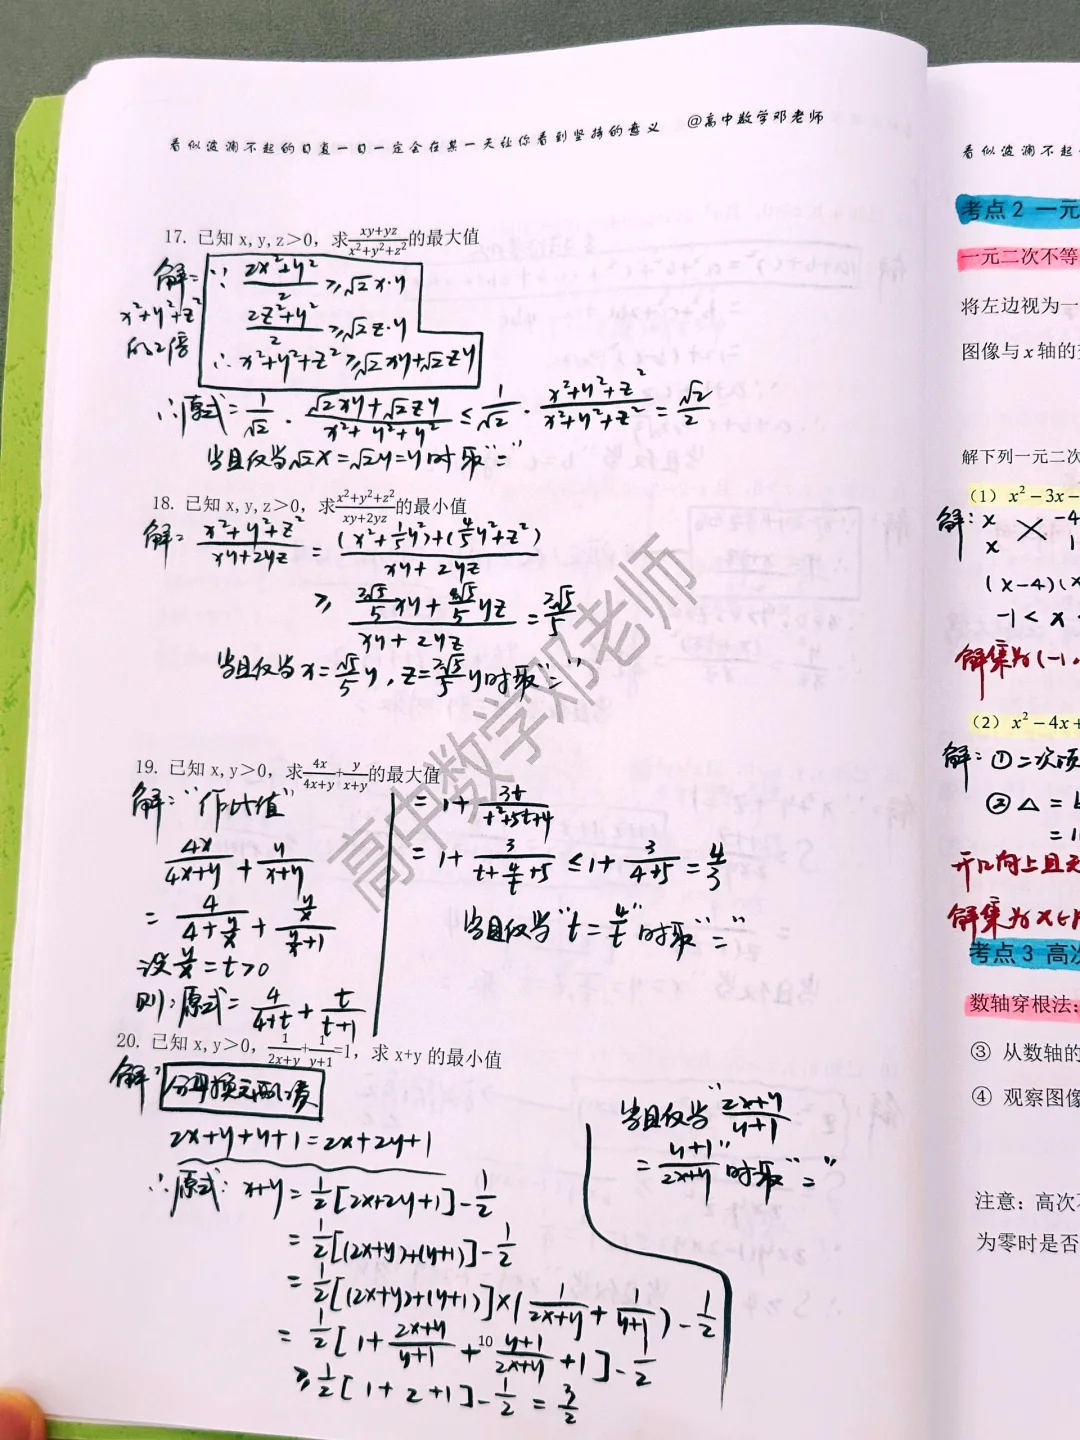 看似波澜不起的日复一日一定会在某一天让你看到坚持的意义 @高中数学邓老师
17. 已知 x,y,z＞0，求(xy+yz)/(x²+y²+z²)的最大值
解: ∵ (2x²+y²)/2 ≥ √2x·y
x²+y²+z²
的2倍
(2z²+y²)/2 ≥ √2z·y
∴ x²+y²+z² ≥ √2xy+√2zy
∴原式 = 1/√2 · (√2xy+√2zy)/(x²+y²+y²) ≤ 1/√2 · (x²+y²+z²)/(x²+y²+z²) = √2/2
当且仅当√2x=√2y=y时取“=”
18. 已知 x,y,z＞0，求(x²+y²+z²)/(xy+2yz)的最小值
解: (x²+y²+z²)/(xy+2yz) = ((x²+1/5y²)+(4/5y²+z²))/(xy+2yz)
≥ (2√5/5xy + 4√5/5yz)/(xy+2yz) = 2√5/5
当且仅当 x=√5/5y, z=2√5/5y时取“=”
19. 已知 x,y＞0，求4x/(4x+y)+y/(x+y)的最大值
解: “作比值”
4x/(4x+y) + y/(x+y)
= 4/(4+y/x) + (y/x)/(y/x+1)
设y/x=t>0
则:原式= 4/(4+t) + t/(t+1)
= 1+ 3t/(t²+5t+4)
= 1+ 3/(t+4/t+5) ≤ 1+ 3/(4+5) = 4/3
当且仅当“t=4/t”时取“=”
20. 已知 x,y＞0，1/(2x+y)+1/(y+1)=1，求 x+y 的最小值
解: 分母换元配凑
2x+y+y+1=2x+2y+1
∴原式: x+y = 1/2[2x+2y+1]-1/2
= 1/2[(2x+y)+(y+1)]-1/2
= 1/2[(2x+y)+(y+1)]×(1/(2x+y) + 1/(y+1)) - 1/2
= 1/2[1+ (2x+y)/(y+1) + (y+1)/(2x+y) +1]-1/2
≥ 1/2[1+2+1]-1/2 = 3/2
当且仅当“(2x+y)/(y+1)
= (y+1)/(2x+y)”时取“=”
10
高中数学邓老师
看似波澜不起
考点2 一元
一元二次不等
将左边视为一
图像与 x 轴的
解下列一元二次
（1）x²−3x−
解: x -4
x 1
(x-4)(x
-1<x<
解集为(-1,
（2）x²−4x+
解: ①二次项
②△=
=1
开口向上且无
解集为x∈
考点3 高次
数轴穿根法:
③ 从数轴的
④ 观察图像
注意: 高次不
为零时是否